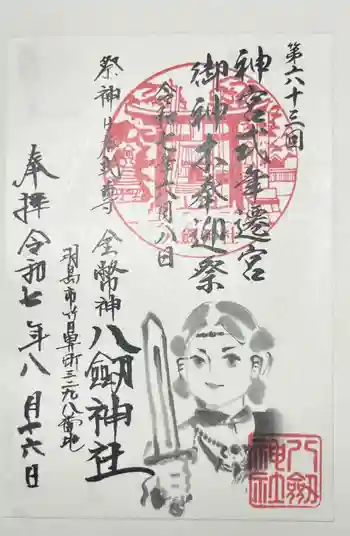 第六十三回
神宮式年遷宮
御神木奉迎祭
令和七年六月八日
祭神 日本武尊
金幣神
八劔神社
羽島市竹鼻町三二九八番地
奉拝 令和七年八月十六日
八劔
神社